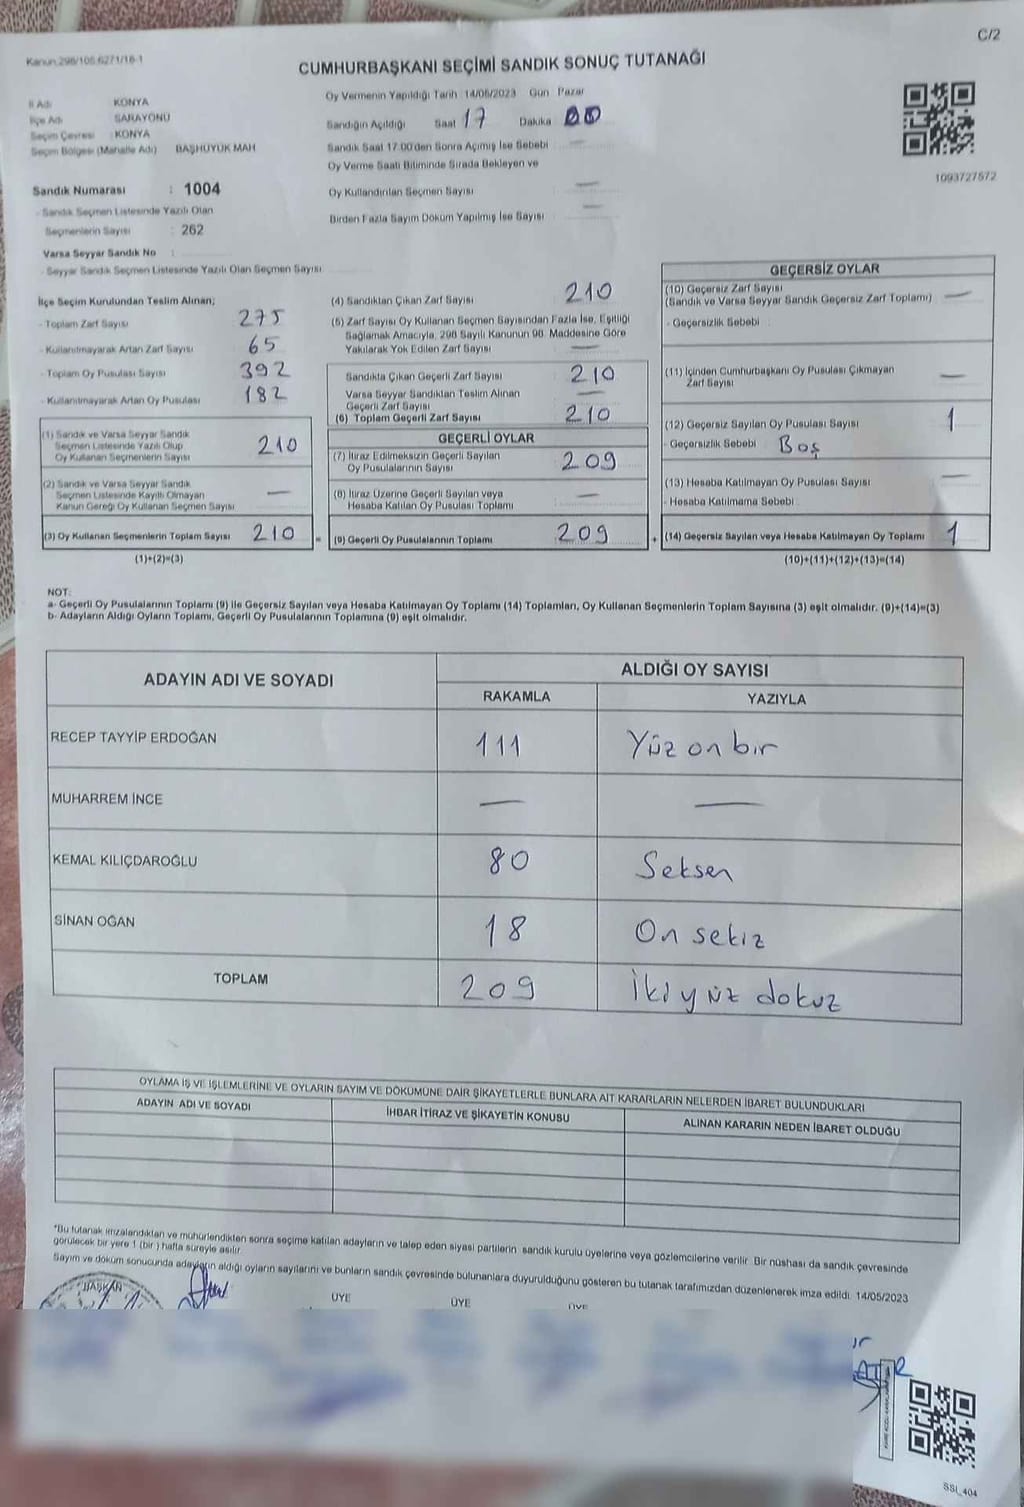 C/2
Kanun,298/105.6271/16-1
CUMHURBAŞKANI SEÇİMİ SANDIK SONUÇ TUTANAĞI
İl Adı KONYA
İlçe Adı SARAYÖNÜ
Seçim Çevresi : KONYA
Seçim Bölgesi (Mahalle Adı) BAŞHÜYÜK MAH
Sandık Numarası : 1004
- Sandık Seçmen Listesinde Yazılı Olan
Seçmenlerin Sayısı : 262
Varsa Seyyar Sandık No :
- Seyyar Sandık Seçmen Listesinde Yazılı Olan Seçmen Sayısı
Oy Vermenin Yapıldığı Tarih 14/05/2023 Gün Pazar
Sandığın Açıldığı Saat 17 Dakika 00
Sandık Saat 17.00'den Sonra Açmış İse Sebebi —
Oy Verme Saati Bitiminde Sırada Bekleyen ve
Oy Kullandırılan Seçmen Sayısı —
Birden Fazla Sayım Döküm Yapılmış İse Sayısı —
1093727572
İlçe Seçim Kurulundan Teslim Alınan;
- Toplam Zarf Sayısı 275
- Kullanılmayarak Artan Zarf Sayısı 65
- Toplam Oy Pusulası Sayısı 392
- Kullanılmayarak Artan Oy Pusulası 182
(1) Sandık ve Varsa Seyyar Sandık
Seçmen Listesinde Yazılı Olup
Oy Kullanan Seçmenlerin Sayısı 210
(2) Sandık ve Varsa Seyyar Sandık
Seçmen Listesinde Kayıtlı Olmayan
Kanun Gereği Oy Kullanan Seçmen Sayısı —
(3) Oy Kullanan Seçmenlerin Toplam Sayısı 210 =
(1)+(2)=(3)
(4) Sandıktan Çıkan Zarf Sayısı 210
(5) Zarf Sayısı Oy Kullanan Seçmen Sayısından Fazla İse, Eşitliği
Sağlamak Amacıyla, 298 Sayılı Kanunun 98. Maddesine Göre
Yakılarak Yok Edilen Zarf Sayısı —
Sandıkta Çıkan Geçerli Zarf Sayısı 210
Varsa Seyyar Sandıktan Teslim Alınan
Geçerli Zarf Sayısı —
(6) Toplam Geçerli Zarf Sayısı 210
GEÇERLİ OYLAR
(7) İtiraz Edilmeksizin Geçerli Sayılan
Oy Pusulalarının Sayısı 209
(8) İtiraz Üzerine Geçerli Sayılan veya
Hesaba Katılan Oy Pusulası Toplamı —
(9) Geçerli Oy Pusulalarının Toplamı 209 +
GEÇERSİZ OYLAR
(10) Geçersiz Zarf Sayısı
(Sandık ve Varsa Seyyar Sandık Geçersiz Zarf Toplamı) —
- Geçersizlik Sebebi :
(11) İçinden Cumhurbaşkanı Oy Pusulası Çıkmayan
Zarf Sayısı —
(12) Geçersiz Sayılan Oy Pusulası Sayısı 1
- Geçersizlik Sebebi Boş
(13) Hesaba Katılmayan Oy Pusulası Sayısı —
- Hesaba Katılmama Sebebi
(14) Geçersiz Sayılan veya Hesaba Katılmayan Oy Toplamı 1
(10)+(11)+(12)+(13)=(14)
NOT:
a- Geçerli Oy Pusulalarının Toplamı (9) ile Geçersiz Sayılan veya Hesaba Katılmayan Oy Toplamı (14) Toplamları, Oy Kullanan Seçmenlerin Toplam Sayısına (3) eşit olmalıdır. (9)+(14)=(3)
b- Adayların Aldığı Oyların Toplamı, Geçerli Oy Pusulalarının Toplamına (9) eşit olmalıdır.
ADAYIN ADI VE SOYADI ALDIĞI OY SAYISI
RAKAMLA YAZIYLA
RECEP TAYYİP ERDOĞAN 111 Yüz on bir
MUHARREM İNCE — —
KEMAL KILIÇDAROĞLU 80 Seksen
SİNAN OĞAN 18 On sekiz
TOPLAM 209 İki yüz dokuz
OYLAMA İŞ VE İŞLEMLERİNE VE OYLARIN SAYIM VE DÖKÜMÜNE DAİR ŞİKAYETLERLE BUNLARA AİT KARARLARIN NELERDEN İBARET BULUNDUKLARI
ADAYIN ADI VE SOYADI İHBAR İTİRAZ VE ŞİKAYETİN KONUSU ALINAN KARARIN NEDEN İBARET OLDUĞU
*Bu tutanak imzalandıktan ve mühürlendikten sonra seçime katılan adayların ve talep eden siyasi partilerin sandık kurulu üyelerine veya gözlemcilerine verilir. Bir nüshası da sandık çevresinde
görülecek bir yere 1 (bir) hafta süreyle asılır.
Sayım ve döküm sonucunda adayların aldığı oyların sayılarını ve bunların sandık çevresinde bulunanlara duyurulduğunu gösteren bu tutanak tarafımızdan düzenlenerek imza edildi. 14/05/2023
BAŞKAN ÜYE ÜYE ÜYE
SSİ_404